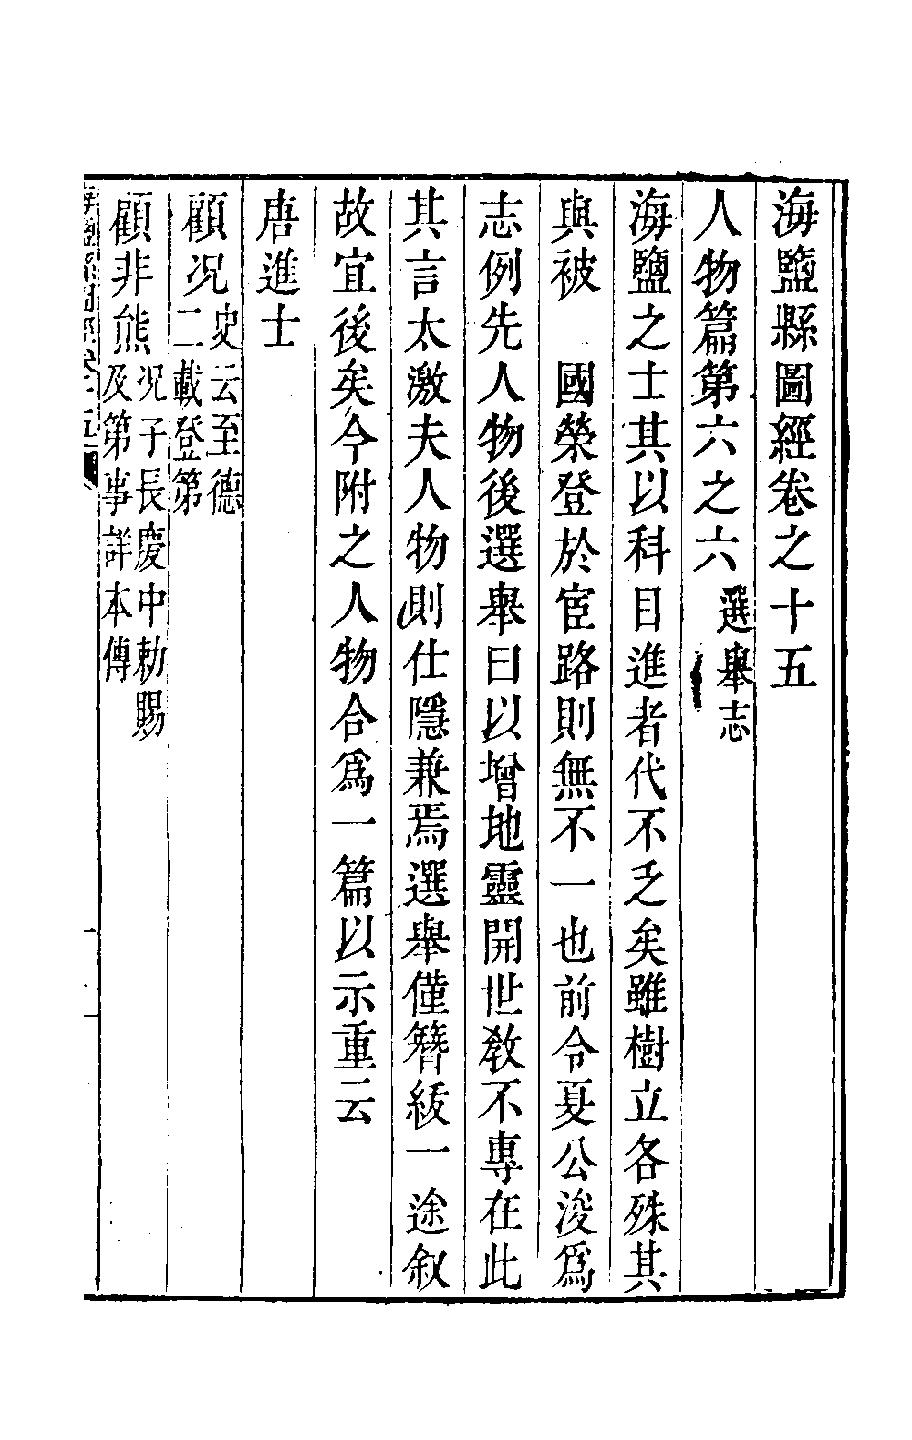 海鹽縣圖經卷之十五
人物篇第六之六 選舉志
海鹽之士其以科目進者代不乏矣雖樹立各殊其
與被　國榮登於宦路則無不一也前令夏公浚爲
志例先人物後選舉曰以增地靈開世教不專在此
其言太激夫人物則仕隱兼焉選舉僅簪紱一途敘
故宜後矣今附之人物合爲一篇以示重云
唐進士
顧况 史云至德二載登第
顧非熊 况子長慶中勅賜及第事詳本傳